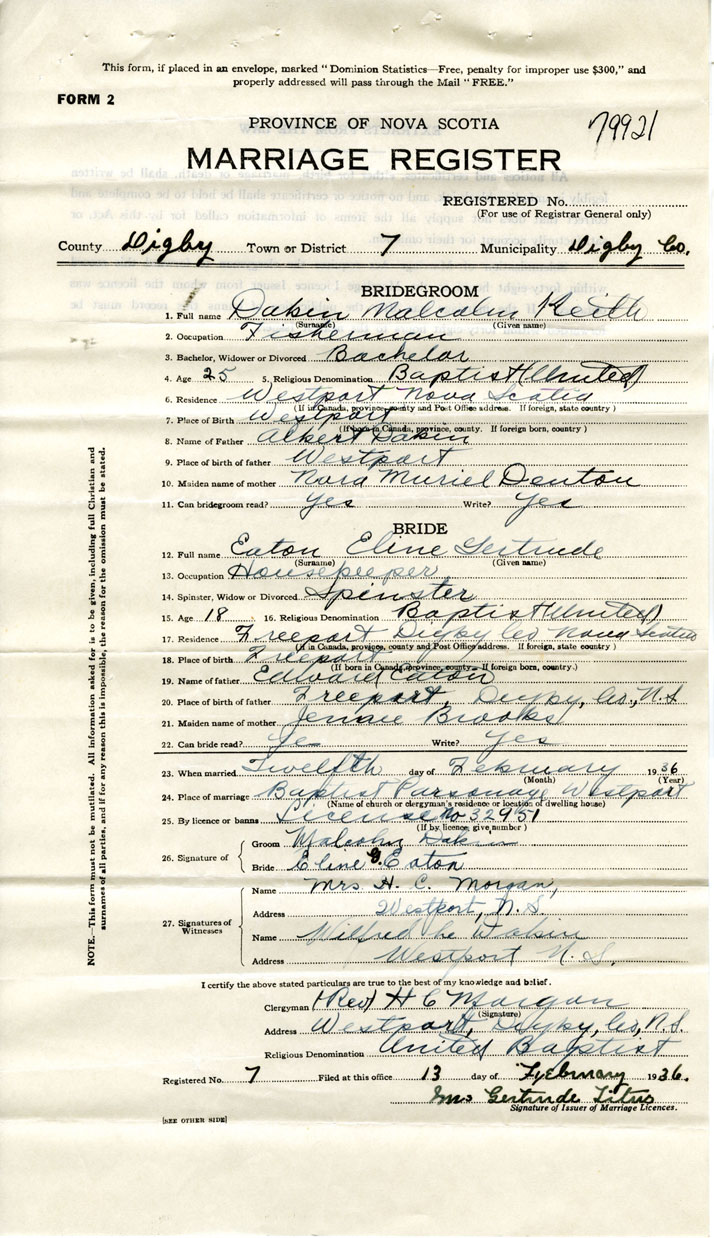 This form, if placed in an envelope, marked "Dominion Statistics—Free, penalty for improper use $300," and
properly addressed will pass through the Mail "FREE."
FORM 2
PROVINCE OF NOVA SCOTIA
79921
MARRIAGE REGISTER
REGISTERED No.
(For use of Registrar General only)
County Digby Town or District 7 Municipality Digby Co.
BRIDEGROOM
1. Full name Dakin Malcolm Keith
(Surname) (Given name)
2. Occupation Fisherman
3. Bachelor, Widower or Divorced Bachelor
4. Age 25 5. Religious Denomination Baptist (United)
6. Residence Westport Nova Scotia
(If in Canada, province, county and Post Office address. If foreign, state country)
7. Place of Birth Westport
(If born in Canada, province, county. If foreign born, country)
8. Name of Father Albert Dakin
9. Place of birth of father Westport
10. Maiden name of mother Nora Muriel Denton
11. Can bridegroom read? Yes Write? Yes
BRIDE
12. Full name Eaton Eline Gertrude
(Surname) (Given name)
13. Occupation Housekeeper
14. Spinster, Widow or Divorced Spinster
15. Age 18 16. Religious Denomination Baptist (United)
17. Residence Freeport Digby Co Nova Scotia
(If in Canada, province, county and Post Office address. If foreign, state country)
18. Place of birth Freeport
(If born in Canada, province, county. If foreign born, country.)
19. Name of father Edward Eaton
20. Place of birth of father Freeport, Digby, Co., N.S
21. Maiden name of mother Jennie Brooks
22. Can bride read? Ye Write? Yes
23. When married Twelfth day of February 1936
(Month) (Year)
24. Place of marriage Baptist Parsonage Westport
(Name of church or clergyman's residence or location of dwelling house)
25. By licence or banns License No 32951
(If by licence, give number)
26. Signature of
Groom Malcolm Dakin
Bride Eline G. Eaton
27. Signatures of Witnesses
Name Mrs. H. C. Morgan,
Address Westport, N.S.
Name Wilfred Dakin
Address Westport N.S.
I certify the above stated particulars are true to the best of my knowledge and belief.
Clergyman (Rev) H C Morgan
(Signature)
Address Westport, Digby, Co., N.S.
Religious Denomination United Baptist
Registered No. 7 Filed at this office 13 day of February 1936.
Mrs Gertrude Titus
Signature of Issuer of Marriage Licences.
[SEE OTHER SIDE]
NOTE.—This form must not be mutilated. All information asked for is to be given, including full Christian and
surnames of all parties, and if for any reason this is impossible, the reason for the omission must be stated.